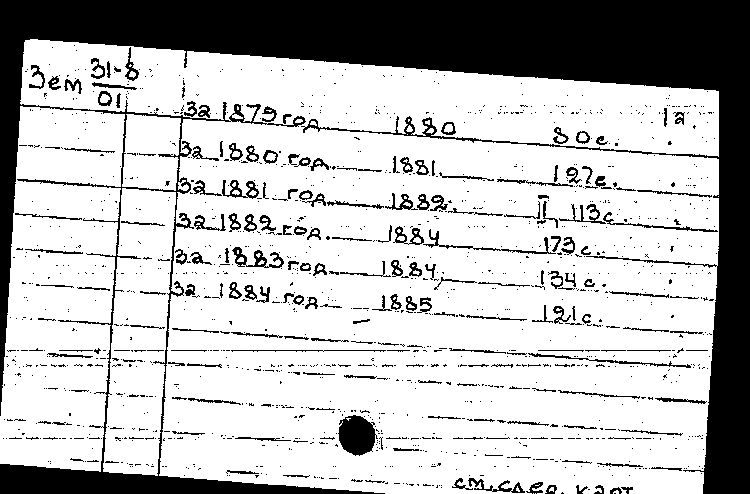 Зем 31-8
01
1а.
за 1879 год 1880 80с.
за 1880 год. 1881. 127с.
за 1881 год. 1882. II, 113с.
за 1882 год. 1884 173с.
за 1883 год 1884, 134с.
за 1884 год 1885 121с.
см. след. карт